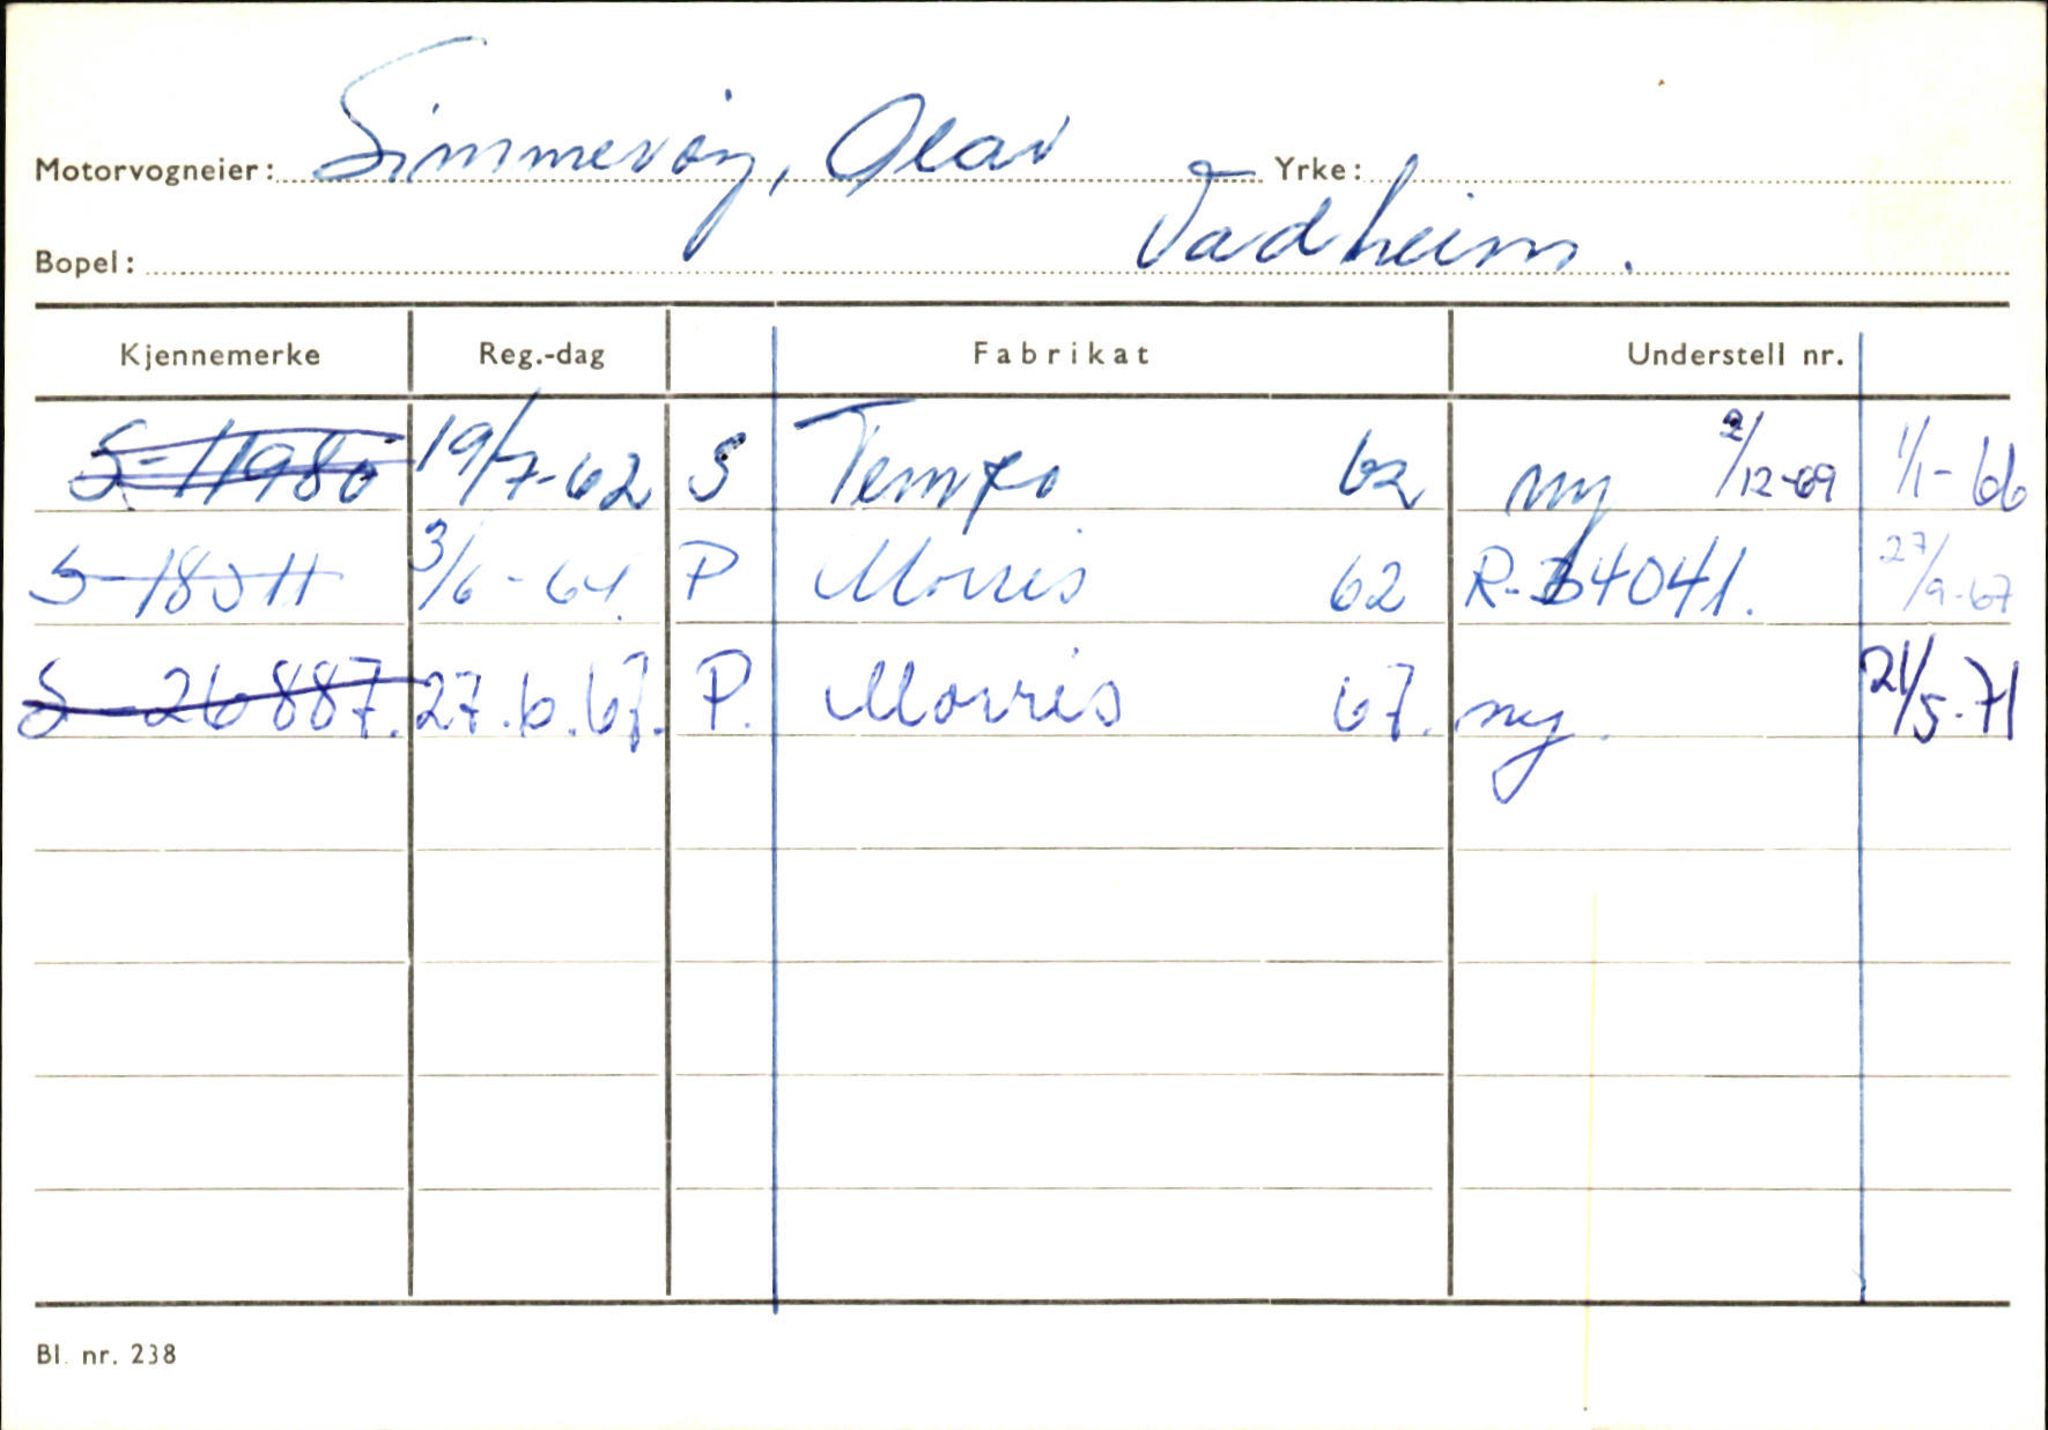 Motorvogneier: Simmevøy, Olav Yrke:
Bopel: Vadheim.
Kjennemerke Reg.-dag Fabrikat Understell nr.
S-11980 19/7-62 S Tempo 62 ny 2/12-69 1/1-66
S-18511 3/6-64. P Morris 62 R-34041. 27/9-67
S-26887. 27.6.67. P. Morris 67. ny. 21/5-71
Bl. nr. 238